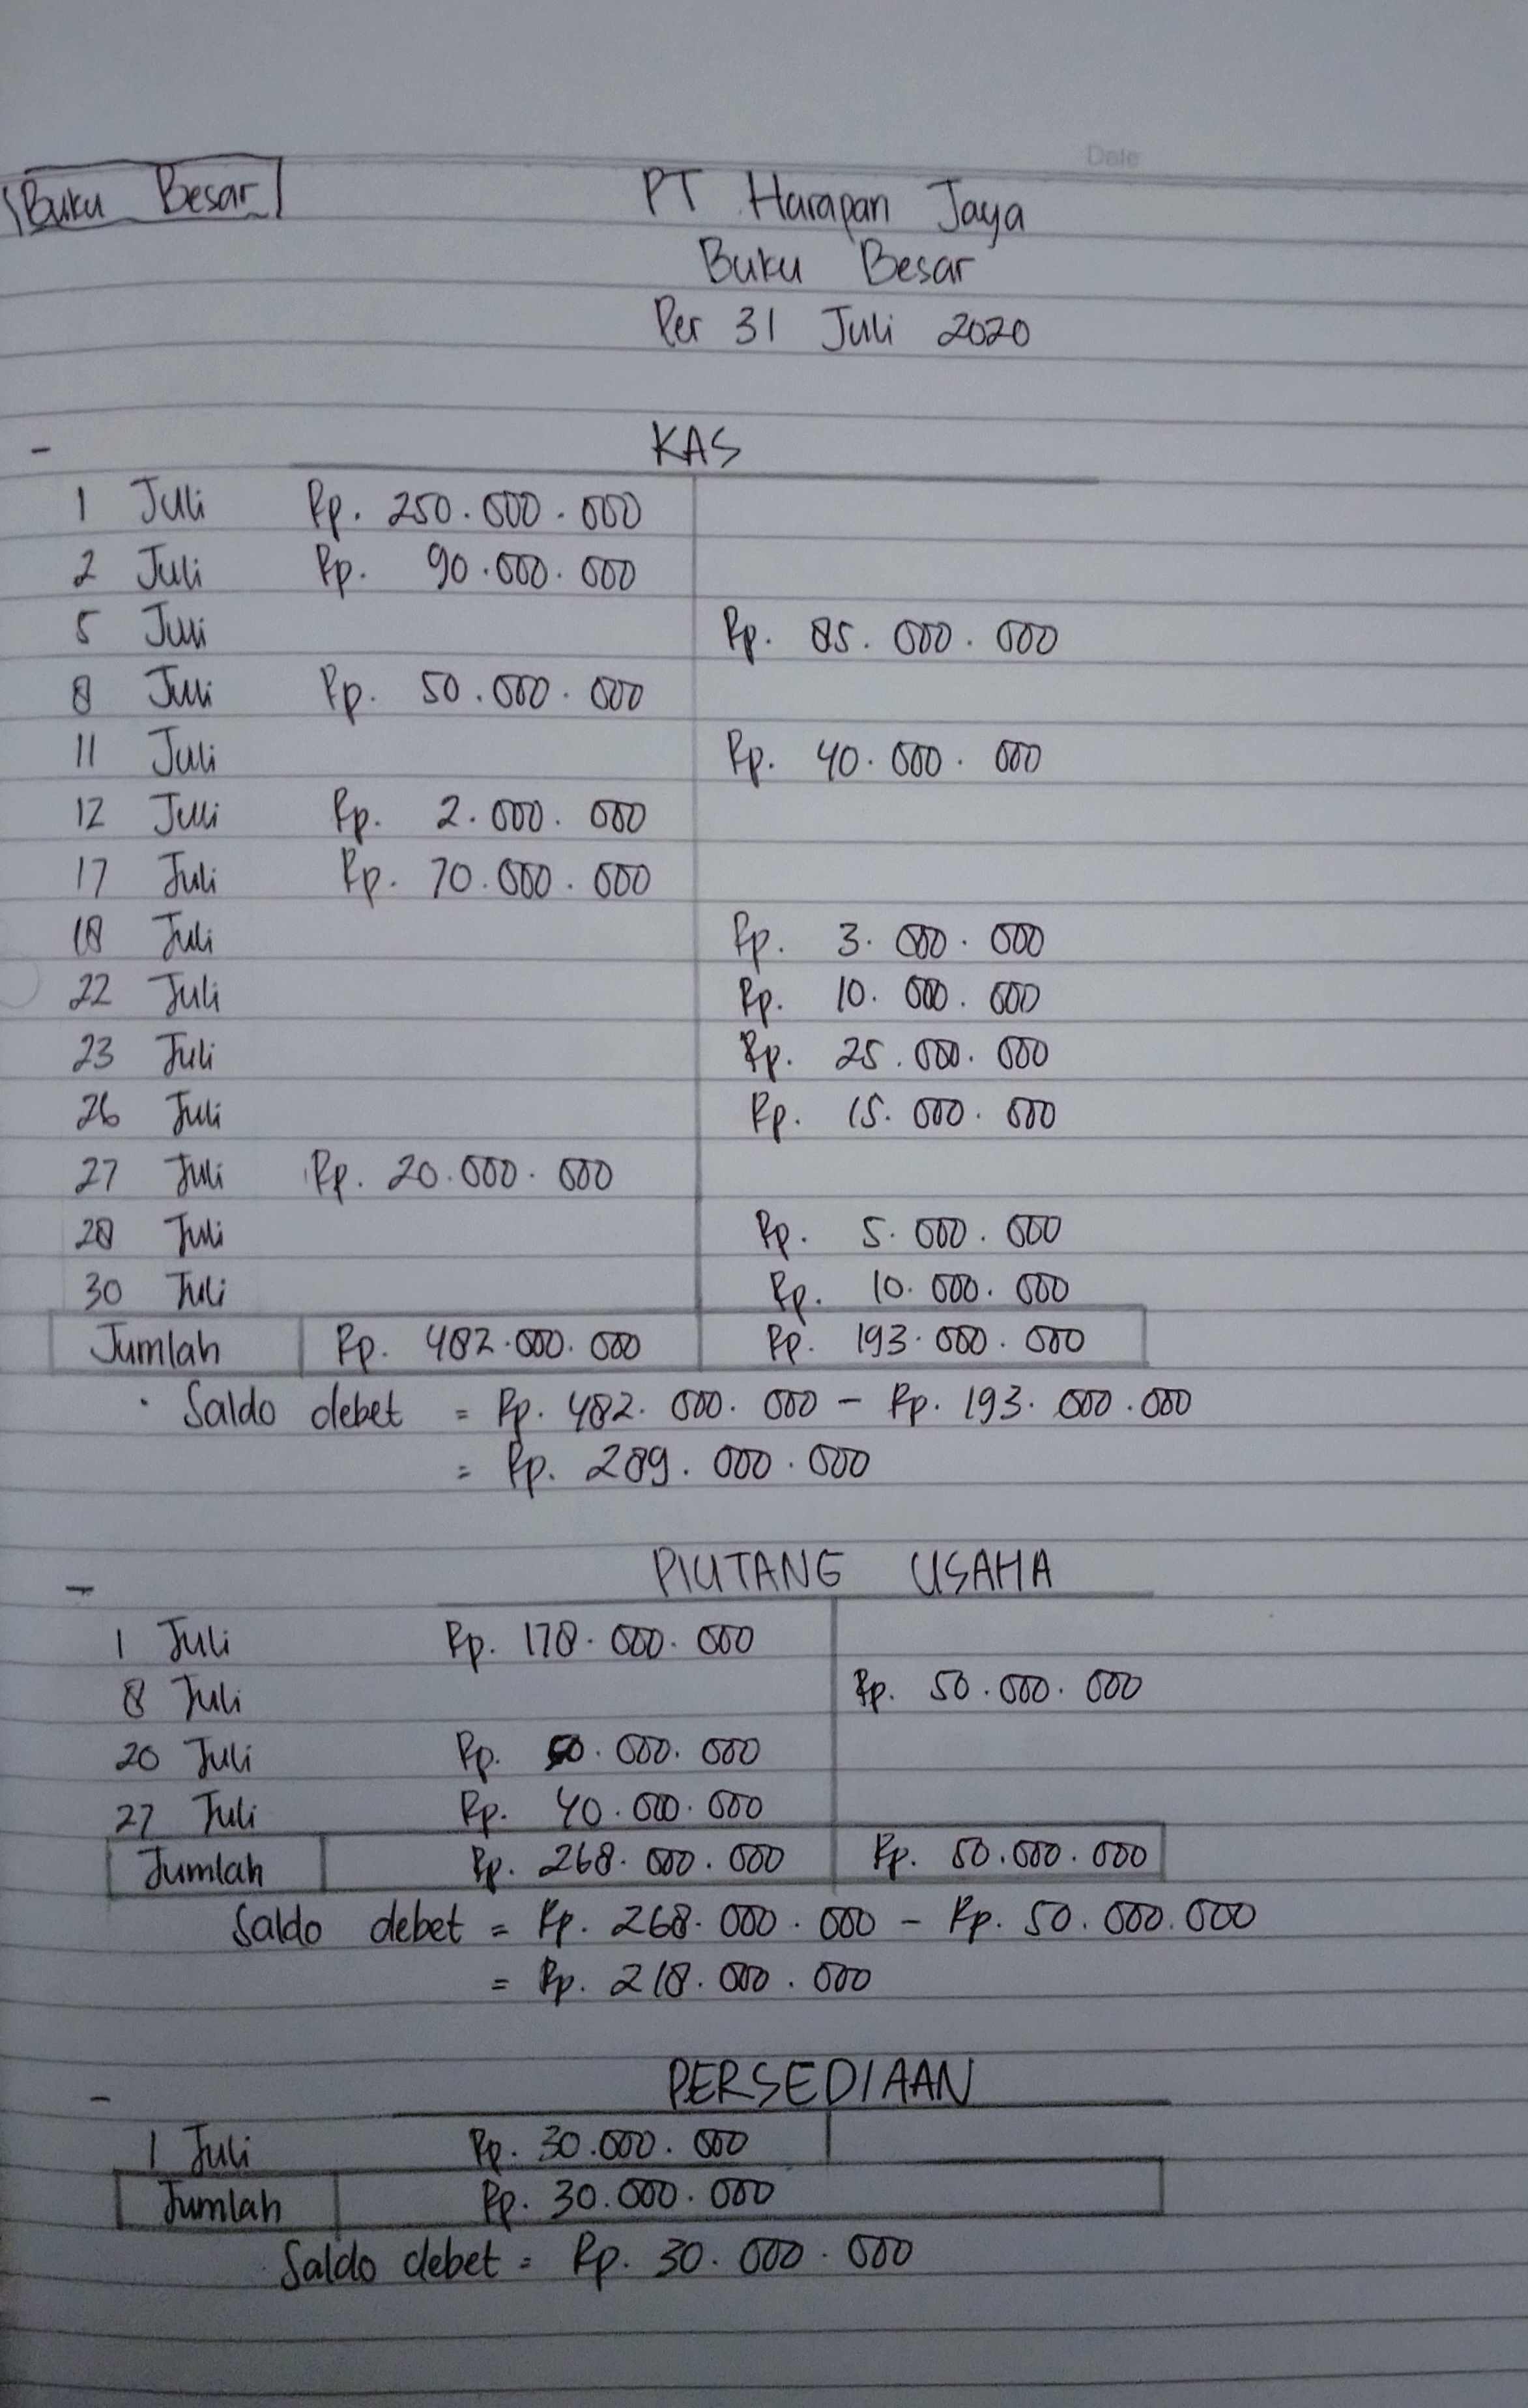 Date
Buku Besar
PT Harapan Jaya
Buku Besar
Per 31 Juli 2020
- KAS
1 Juli Rp. 250.000.000
2 Juli Rp. 90.000.000
5 Juli Rp. 85.000.000
8 Juli Rp. 50.000.000
11 Juli Rp. 40.000.000
12 Juli Rp. 2.000.000
17 Juli Rp. 70.000.000
18 Juli Rp. 3.000.000
22 Juli Rp. 10.000.000
23 Juli Rp. 25.000.000
26 Juli Rp. 15.000.000
27 Juli Rp. 20.000.000
28 Juli Rp. 5.000.000
30 Juli Rp. 10.000.000
Jumlah Rp. 482.000.000 Rp. 193.000.000
· Saldo debet = Rp. 482.000.000 - Rp. 193.000.000
= Rp. 289.000.000
- PIUTANG USAHA
1 Juli Rp. 178.000.000
8 Juli Rp. 50.000.000
20 Juli Rp. 50.000.000
27 Juli Rp. 40.000.000
Jumlah Rp. 268.000.000 Rp. 50.000.000
Saldo debet = Rp. 268.000.000 - Rp. 50.000.000
= Rp. 218.000.000
- PERSEDIAAN
1 Juli Rp. 30.000.000
Jumlah Rp. 30.000.000
Saldo debet = Rp. 30.000.000